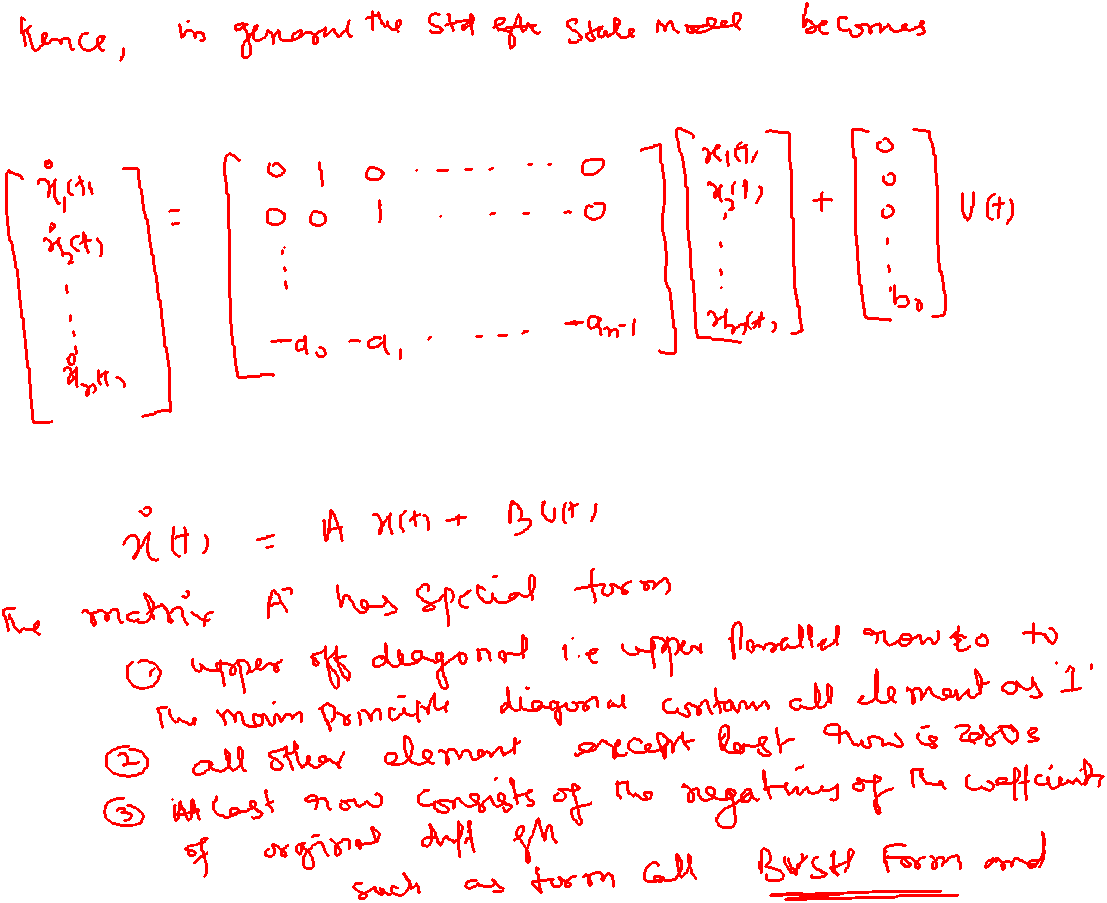 Hence, in general the Std eqn State model becomes
[ẋ₁(t) ẋ₂(t) ⋮ ẋₙ(t)] = [0 1 0 ...... 0; 0 0 1 ..... 0; ⋮ ; -a₀ -a₁ ..... -aₙ₋₁] [x₁(t) x₂(t) ⋮ xₙ(t)] + [0 0 0 ⋮ b₀] U(t)
ẋ(t) = A x(t) + B U(t)
The matrix A has special form
① upper off diagonal i.e upper Parallel row to
The main Principle diagonal contain all element as '1'
② all other element except last row is zeros
③ last row consists of the negatives of the coefficients
of orginal diff eqn
such as form call BUSH Form and